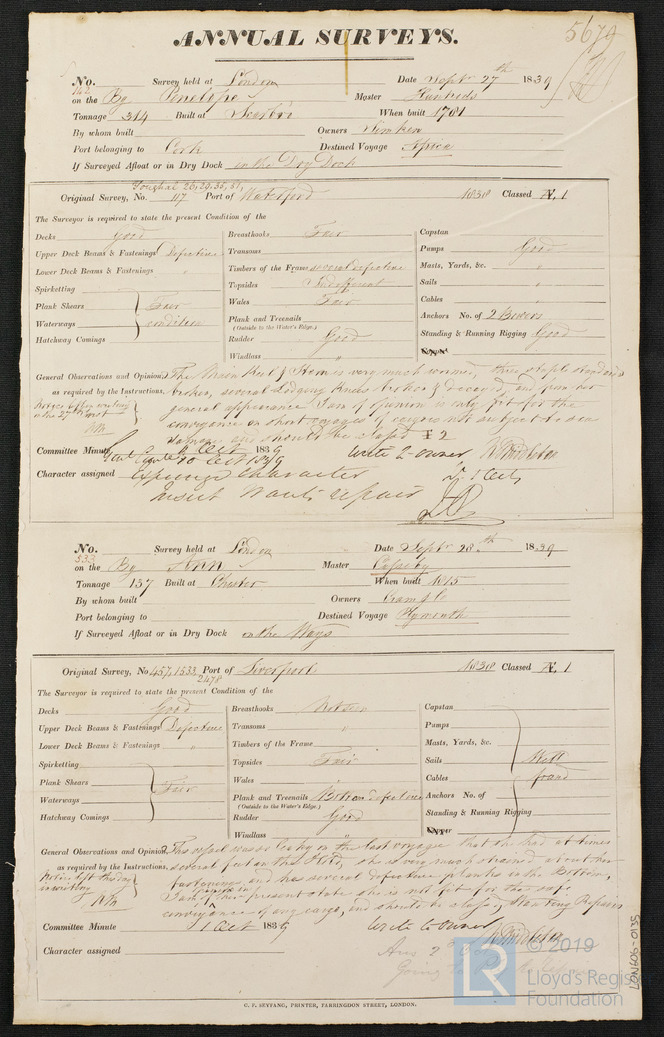 ANNUAL SURVEYS.
5679
No. 142 Survey held at London Date Septr 27th 1839
on the Bg Penelope Master
Tonnage 314 Built at Scarbro When built 1781
By whom built Owners Simken
Port belonging to Cork Destined Voyage Africa
If Surveyed Afloat or in Dry Dock in the Dry Dock
Youghal 26, 29, 35, 51,
Original Survey, No. 117 Port of Waterford 1838 Classed Æ 1
The Surveyor is required to state the present Condition of the
Decks good
Upper Deck Beams & Fastenings Defective
Lower Deck Beams & Fastenings "
Spirketting
Plank Shears Fair
Waterways condition
Hatchway Comings
Breasthooks Fair
Transoms
Timbers of the Frame several defective
Topsides Indifferent
Wales Fair
Plank and Treenails
(Outside to the Water's Edge.)
Rudder Good
Windlass "
Capstan
Pumps Good
Masts, Yards, &c. "
Sails "
Cables
Anchors No. of 2 Bowers
Standing & Running Rigging Good
General Observations and Opinion, The Main Keel & Stem is very much wormed, three staple standards
as required by the Instructions. broken, several Lodging Knees broken & decayed, and from her
general appearance I am of opinion is only fit for the
conveyance on short voyages of cargoes not subject to sea
damage and should be classed Æ 2
Notice left in writing
on the 27th Inst
Committee Minute 1839 Write to owner W Middleton
10 Oct 1839 1 Oct
Character assigned Expunge Character
Insert Wants repair
No. 533 Survey held at London Date Septr 28th 1839
on the Bg Ann Master
Tonnage 157 Built at Chester When built 1815
By whom built Owners Gamble
Port belonging to Destined Voyage Plymouth
If Surveyed Afloat or in Dry Dock on the Ways
Original Survey, No 457, 1533, 2478 Port of Liverpool 1838 Classed Æ 1
The Surveyor is required to state the present Condition of the
Decks Good
Upper Deck Beams & Fastenings Defective
Lower Deck Beams & Fastenings "
Spirketting
Plank Shears Fair
Waterways
Hatchway Comings
Breasthooks Rotten
Transoms "
Timbers of the Frame
Topsides Fair
Wales "
Plank and Treenails Bottom defective
(Outside to the Water's Edge.)
Rudder Good
Windlass "
Capstan
Pumps
Masts, Yards, &c.
Sails Well
Cables found
Anchors No. of
Standing & Running Rigging
General Observations and Opinion, This vessel was so leaky on the last voyage that she had at times
as required by the Instructions. several feet in the Hold, she is very much strained about her
fastenings, and has several defective planks in the Bottom,
I am of opinion in her present state she is not fit for the safe
conveyance of any cargo, and should be classed, Wanting Repairs
Notice left this day
in writing
Committee Minute 1 Oct 1839 Write to Owner W Middleton
Character assigned
C. F. SEYFANG, PRINTER, FARRINGDON STREET, LONDON.
LON606-0135
© 2019
LR
Lloyd's Register
Foundation